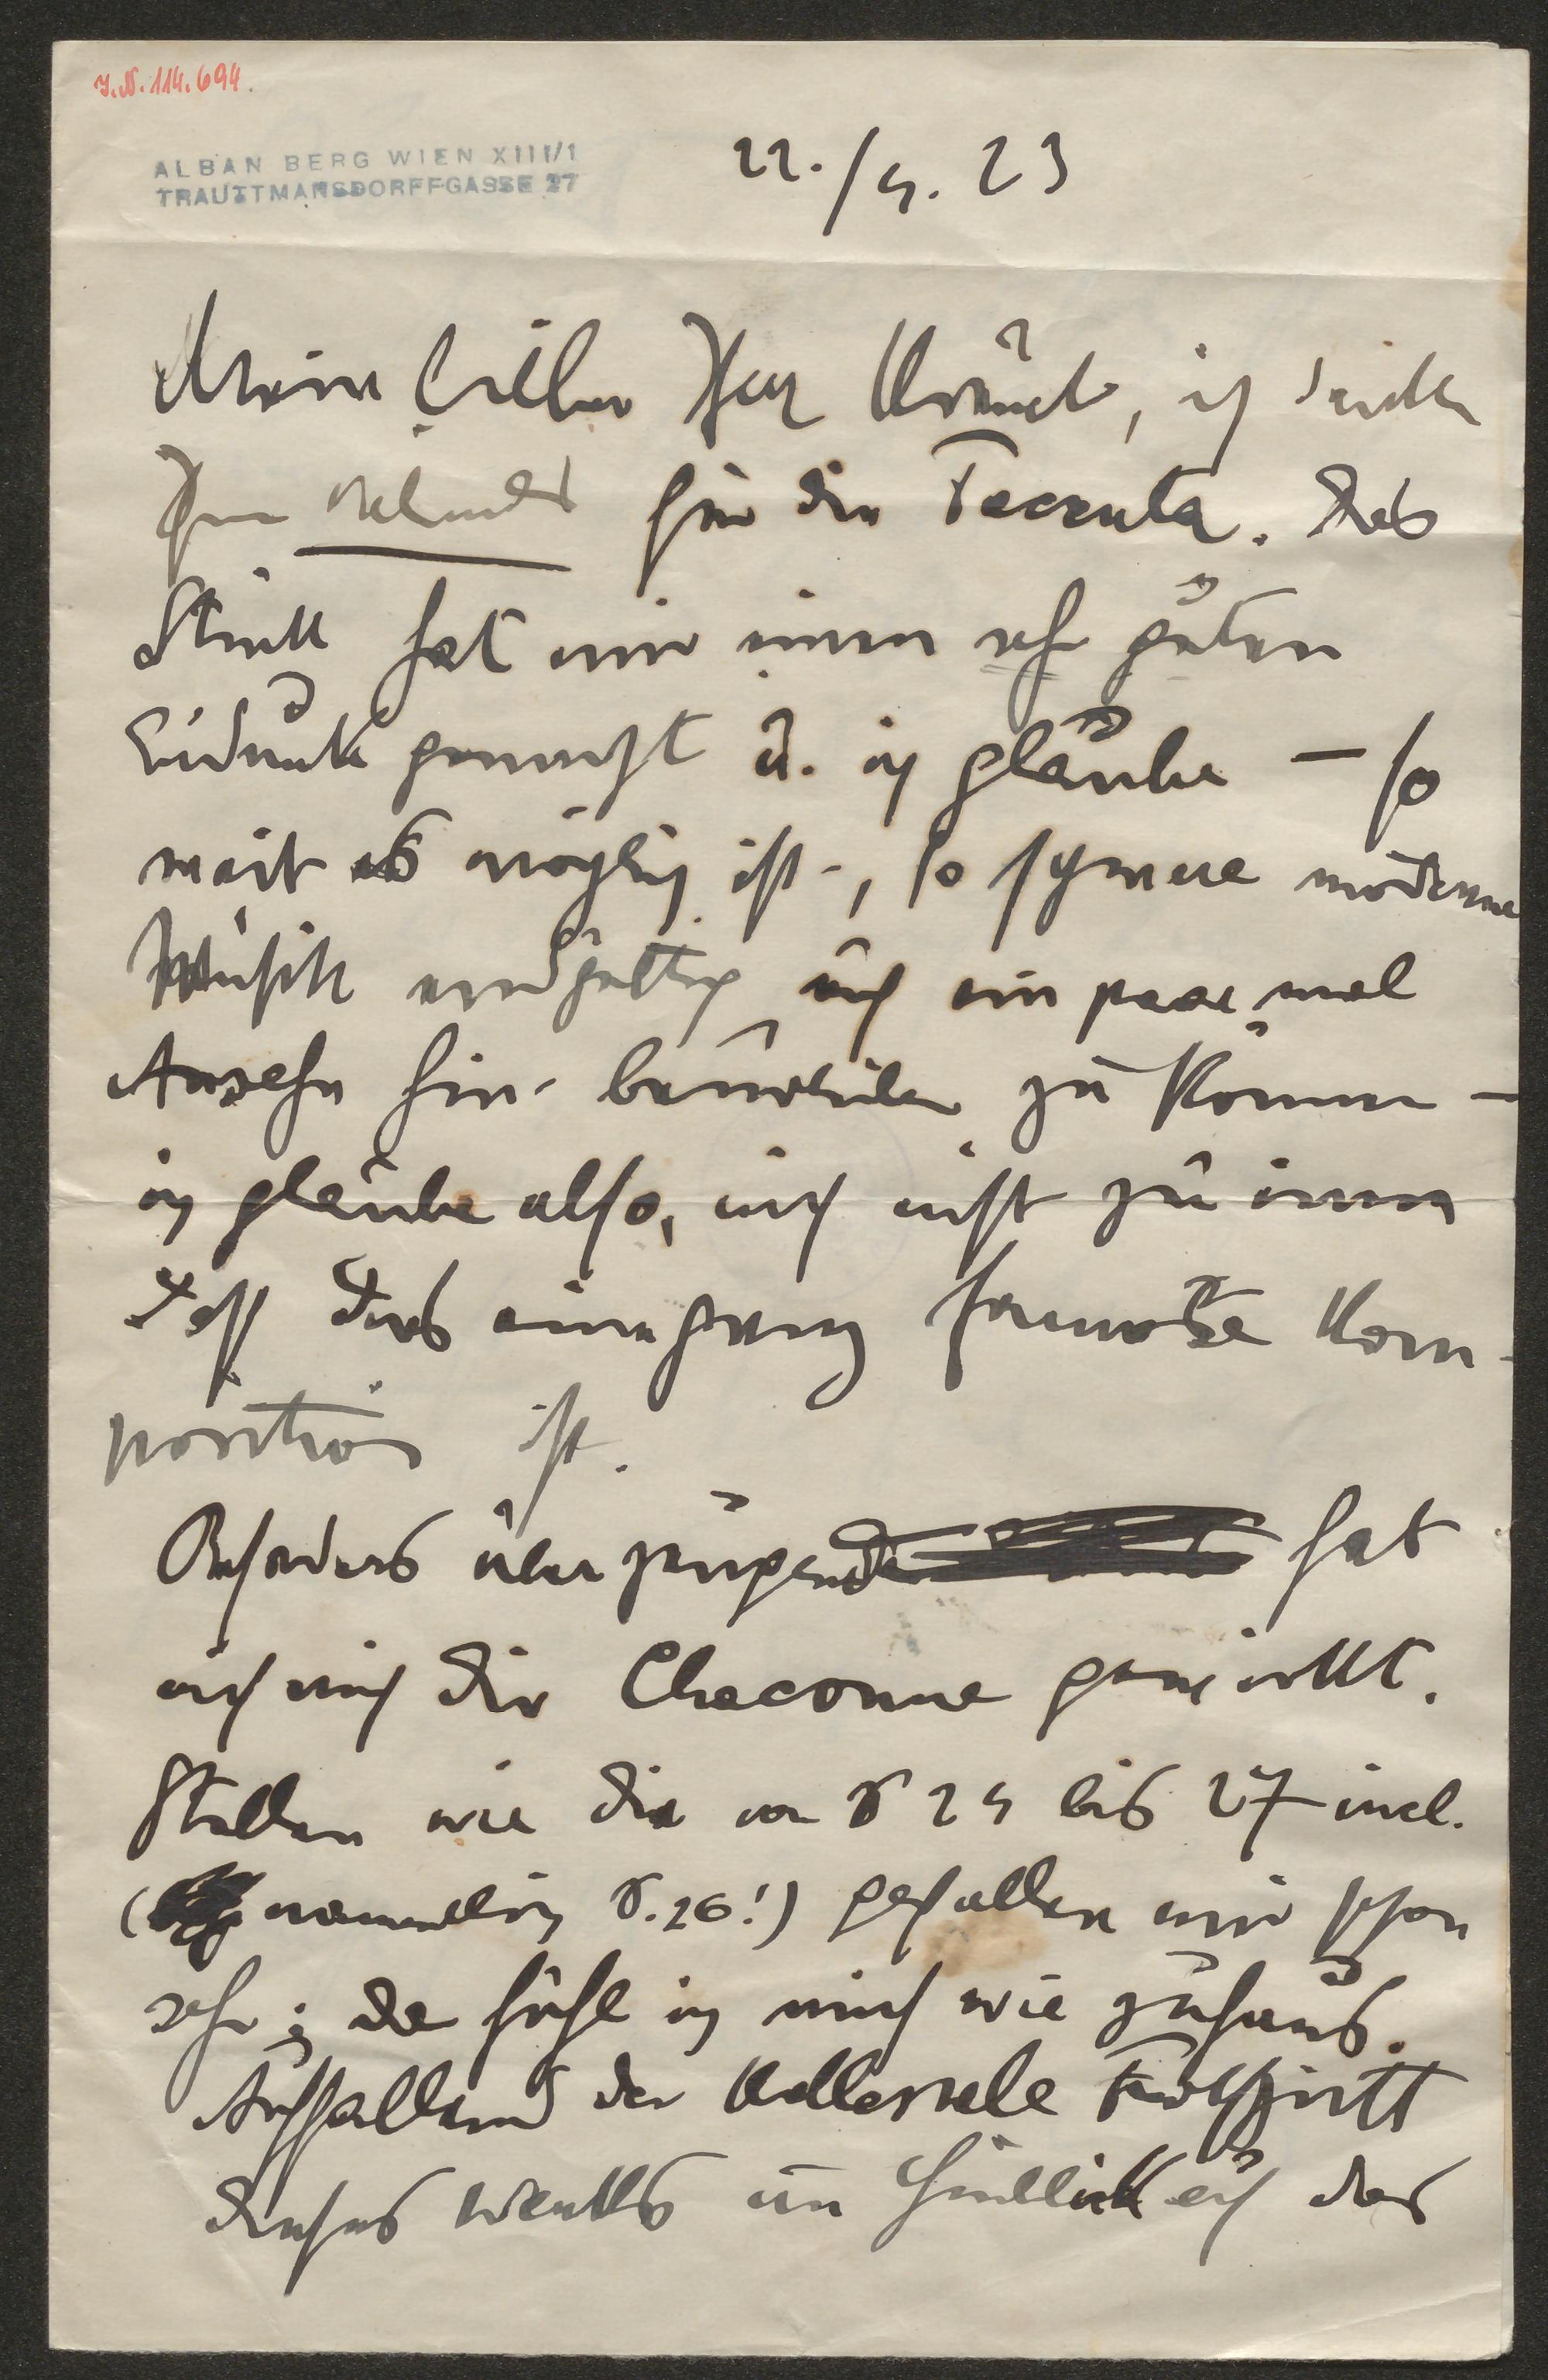 J.N. 114.694.
ALBAN BERG WIEN XIII/1
TRAUTTMANSDORFFGASSE 27
22./5. 23
Mein lieber Herr Křenek, ich danke
Ihnen vielmals für die Toccata. Das
Stück hat mir einen sehr guten
Eindruck gemacht u. ich glaube – so
weit es möglich ist –, so schwere moderne
Musik endgiltig auf ein paar mal
Ansehn hin beurteilen zu können –
ich glaube also, mich nicht zu irren
daß das eine ganz famose Kom-
position ist.
Besonders überzeugend hat
auf mich die Chaconne gewirkt.
Stellen wie die von S 25 bis 27 incl.
(namentlich S. 26!) gefallen mir schon
sehr; da fühl ich mich wie zuhaus.
Auffallend der kollossale Fortschritt
dieses Werks im Hinblick auf das